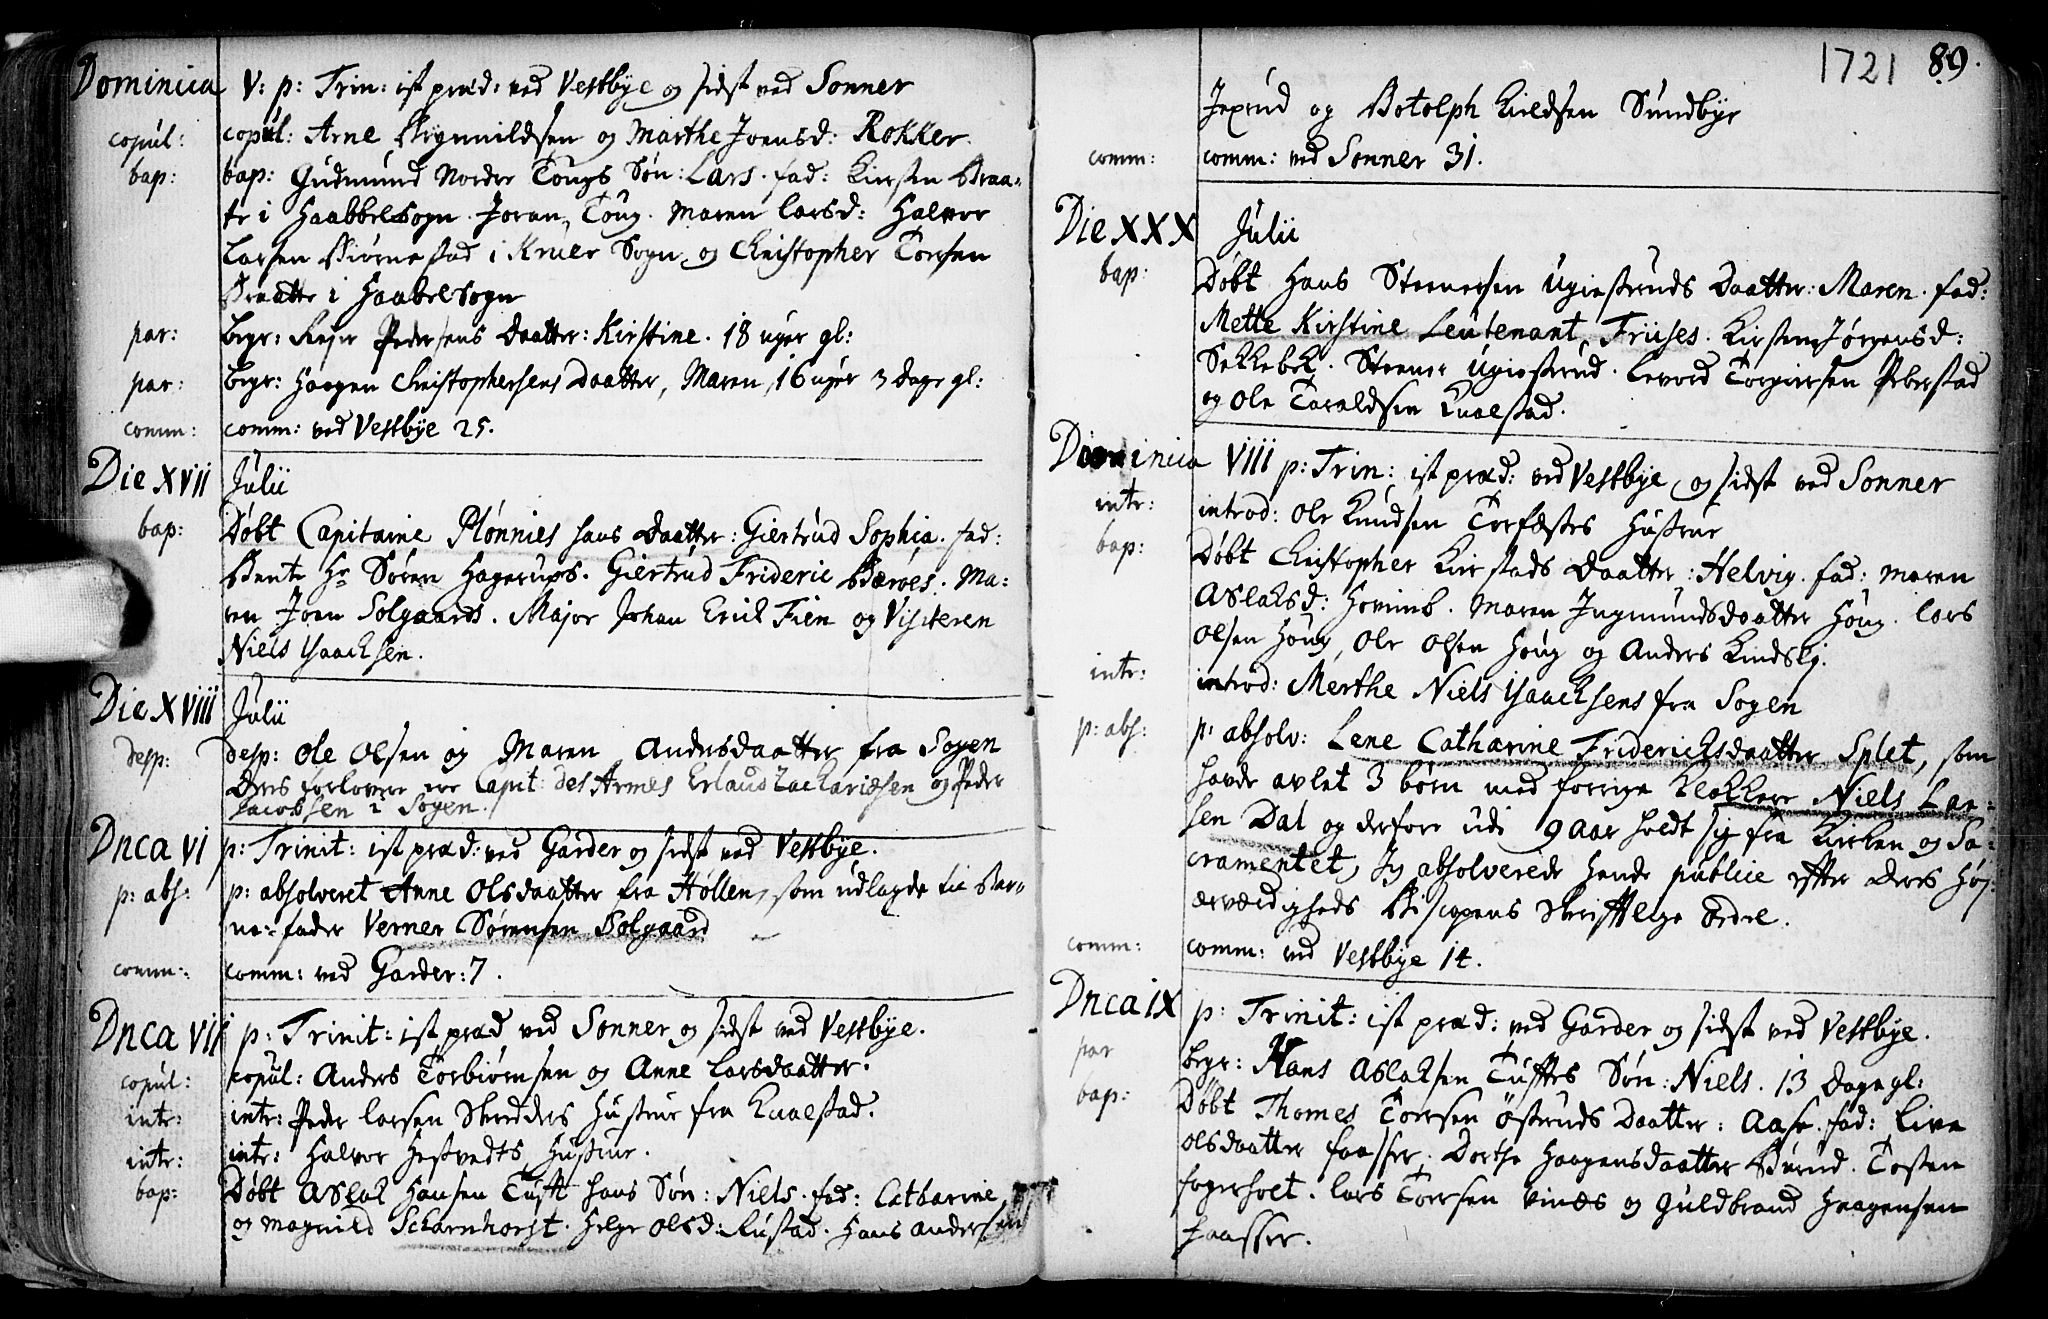 Dominica V: p: Trin: ist præd: ved Vestbye og sidst ved Sonner
copul: copul: Arne Brynnildsen og Marthe Joensd: Rokker.
bap: bap: Gudmund Norder Tougs Søn: Lars. fad: Kirsten Braa-
te i Haabbelsogn. Joran Toug. Maren Larsd: Halvor
Larsen Biørnestad i Kruer Sogn og Christopher Torsen
Braatte i Haabelsogn
par: begr: Pedersens Daatter: Kirstine. 18 uger gl:
par: begr: Haagen Christophersens Daatter, Maren, 16 uger 3 dage gl:
comm: comm: ved Vestbye 25.
Die XVII Julii
bap: Døbt Capitaine Plønnies hans Daatter: Giertrud Sophia. fad:
Bente Hr Søren Hagerups. Giertrud Frideric Bærøes. Ma:
ren Joen Solgaards. Major Johan Erick Fien og Visiteren
Niels Isaacksen.
Die XVIII Julii
desp: desp: Ole Olsen og Maren Andersdaatter fra Sogen
Deres forlovere ere Capit: des Armes Erland Zachariæsen og Peder
Jacobsen i Sogen.
Dnca VI p: Trinit: ist præd: ved Garder og sidst ved Vestbye.
p: abs: p: absolveret Anne Olsdaatter fra Hollen, som udlagde til Bar-
ne-fader Verner Sørensen Solgaard
comm: comm: ved Garder: 7.
Dnca VII p: Trinit: ist præd ved Sonner og sidst ved Vestbye.
copul: copul: Anders Torbiørnsen og Anne Larsdaatter.
intr: intr: Peder Larsen Skredders Hustrue fra Kualstad.
intr: intr: Halvor Hestvedts Hustrue.
bap: Døbt Aslak Hansen Tufft hans Søn: Niels. fad: Catharine
og Magnild Scharnhorst. Helge Olsd: Rustad. Hans Andersen
1721 89.
Jexrud og Botolph Kieldsen Sundbye
comm: comm: ved Sonner 31.
Die XXX Julii
bap: Døbt Hans Steenersen Ugiestruds Daatter: Maren. fad:
Mette Kirstine Leutenant Friises. Kirsten Jørgensd:
Sekkebek. Steener Ugiestrud. Levord Torgiersen Peberstad
og Ole Taraldsen Kualstad.
Dominica VIII p: Trin: ist præd: ved Vestbye og sidst ved Sonner
intr: introd: Ole Knudsen Torfæstes Hustrue
bap: Døbt Christopher Kirstads Daatter: Helvig. fad: Maren
Aslaksd: Hovimb. Maren Ingmundsdaatter Houg. Lars
Olsen Houg, Ole Olsen Houg og Anders Kindskj.
intr: introd: Merthe Niels Isaacksens fra Sogen
p: abs: p: absolv: Lene Catharine Friderichsdaatter Splet, som
hafde avlet 3 børn med forrige Klokkere Niels Lar-
sen Dal og derfore udi 9 Aar holdt sig fra Kirken og Sa-
cramentet, Jeg absolverede hende publice effter Deres Høj-
ærværdigheds Biscopens Skrifftlige Ordre.
comm: comm: ved Vestbye 14.
Dnca IX p: Trinit: ist præd: ved Garder og sidst ved Vestbye.
par begr: Hans Aslaksen Tufftes Søn: Niels. 13 dage gl:
bap: Døbt Thomes Torsen Østruds Daatter: Aase. fad: Live
Olsdaatter Haasser. Dorthe Haagensdaatter Burud. Tosten
Fogerholt. Lars Torsen Vinæs og Guldbrand Haagensen
Haasser.